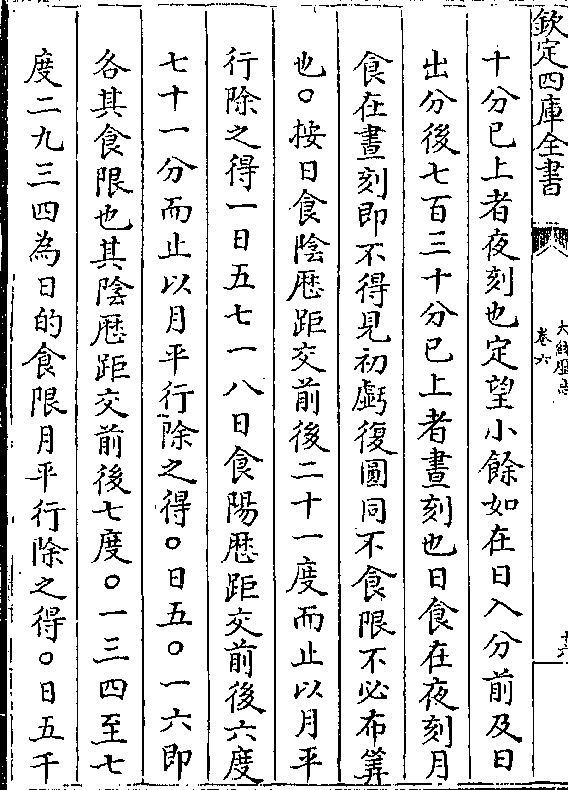 欽定四庫全書
大統歷志
卷六
十分已上者夜刻也定望小餘如在日入分前及日
出分後七百三十分已上者晝刻也日食在夜刻月
食在晝刻即不得見初虧復圓同不食限不必布筭
也○按日食陰厯距交前後二十一度而止以月平
行除之得一日五七一八日食陽厯距交前後六度
七十一分而止以月平行除之得○日五○一六即
各其食限也其陰厯距交前後七度○一三四至七
度二九三四為日的食限月平行除之得○日五千